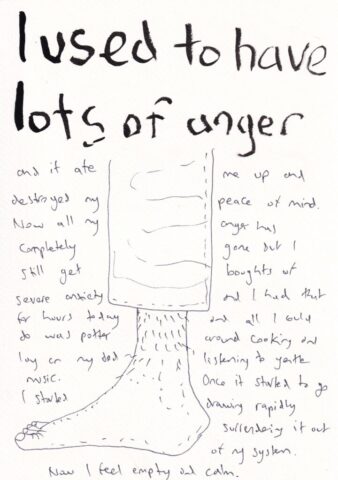 I used to have
lots of anger
and it ate me up and
destroyed my peace of mind.
Now all my anger has
completely gone but I
still get boughts of
severe anxiety and I had that
for hours today and all I could
do was potter around cooking and
lay on my bed listening to gentle
music. Once it started to go
I started drawing rapidly
surrendering it out
of my system.
Now I feel empty and calm.